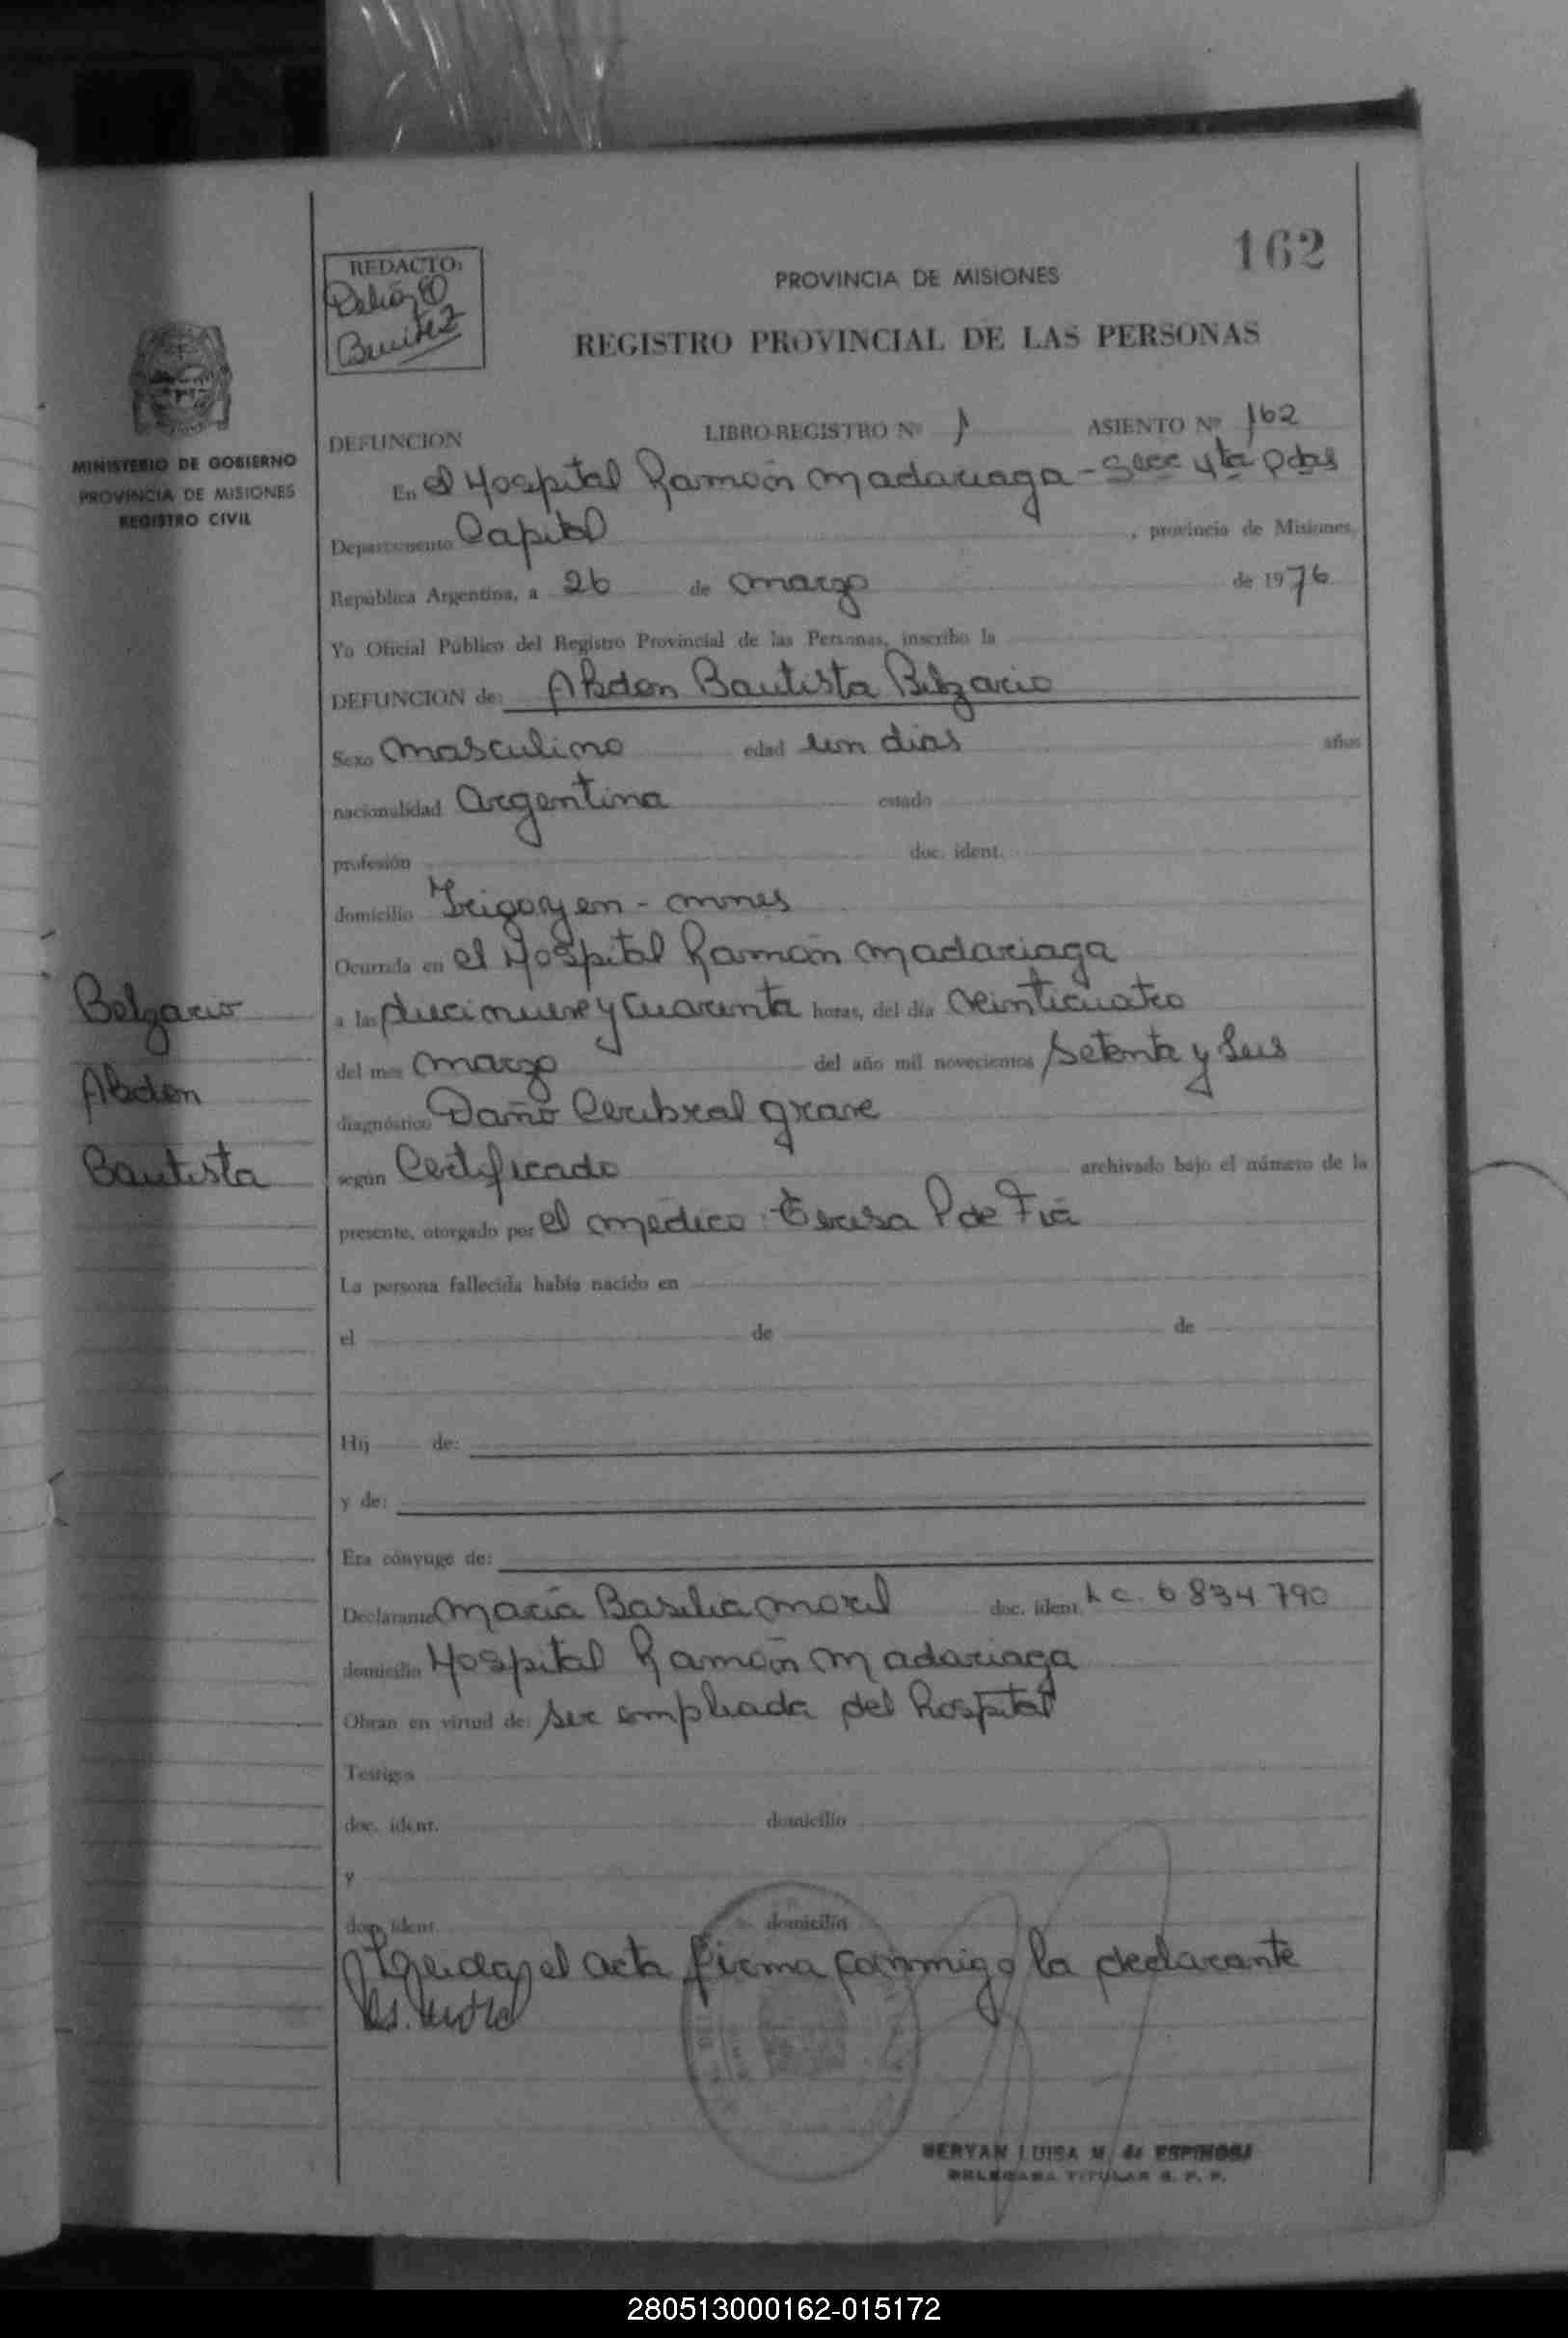 162
REDACTO:
Benitez
PROVINCIA DE MISIONES
REGISTRO PROVINCIAL DE LAS PERSONAS
MINISTERIO DE GOBIERNO
PROVINCIA DE MISIONES
REGISTRO CIVIL
DEFUNCION LIBRO-REGISTRO Nº 1 ASIENTO Nº 162
En el Hospital Ramón Madariaga - Secc 4ta Pdas
Departamento Capital, provincia de Misiones,
República Argentina, a 26 de marzo de 1976
Yo Oficial Público del Registro Provincial de las Personas, inscribo la
DEFUNCION de: Abdon Bautista Belzario
Sexo masculino edad un dias años
nacionalidad Argentina estado
profesión doc. ident.
domicilio Irigoyen - mnes
Ocurrida en el Hospital Ramón Madariaga
Belzario
a las diecinueve y cuarenta horas, del día veinticuatro
del mes marzo del año mil novecientos setenta y seis
Abdon
diagnóstico Daño Cerebral grave
Bautista
según Certificado archivado bajo el número de la
presente, otorgado por el medico Teresa P de
La persona fallecida había nacido en
el de de
Hij de:
y de:
Era cónyuge de:
Declarante María Basilia Morel doc. ident. L C. 6 834 790
domicilio Hospital Ramón Madariaga
Obran en virtud de: ser empleada del hospital
Testigos
doc. ident. domicilio
y
doc. ident. domicilio
Leida el acta firma conmigo la declarante
LUISA M. de ESPINOSA
DELEGADA TITULAR R. P. P.
280513000162-015172